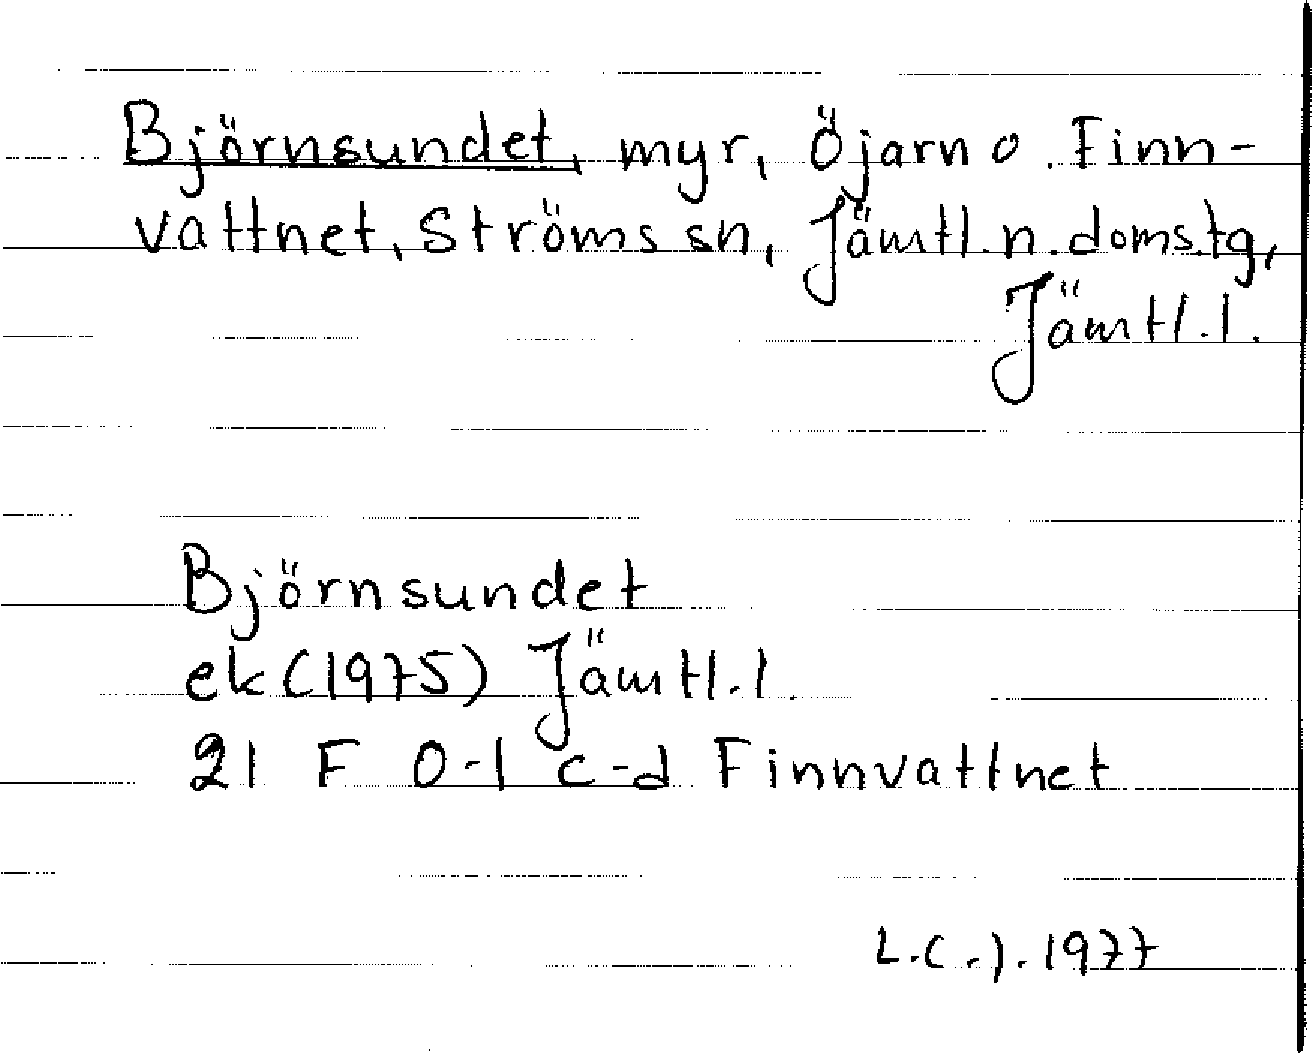 Björnsundet, myr, Öjarn o. Finn-
vattnet, Ströms sn, Jämtl. n. doms.tg,
Jämtl. l.
Björnsundet
ek (1975) Jämtl. l.
21 F 0-1 c-d Finnvattnet
L.C.J. 1977